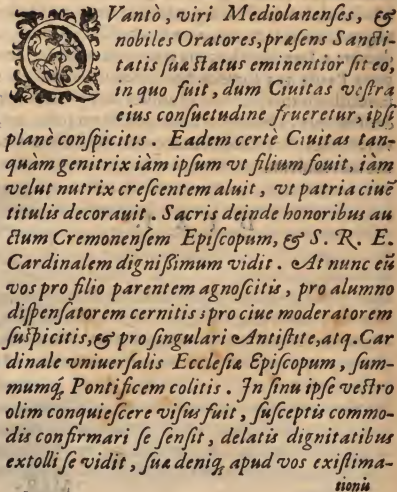 QVantò, viri Mediolanenses, &
nobiles Oratores, præsens Sancti-
tatis suæ Status eminentior sit eo,
in quo fuit, dum Ciuitas vestra
eius consuetudine frueretur, ipsi
planè conspicitis. Eadem certè Ciuitas tan-
quàm genitrix iàm ipsum vt filium fouit, iàm
velut nutrix crescentem aluit, vt patria ciuē
titulis decorauit. Sacris deinde honoribus au
ctum Cremonensem Episcopum, & S. R. E.
Cardinalem dignißimum vidit. At nunc eū
vos pro filio parentem agnoscitis, pro alumno
dispensatorem cernitis; pro ciue moderatorem
suspicitis, & pro singulari Antistite, atq. Car
dinale vniuersalis Ecclesiæ Episcopum, sum-
mumq́. Pontificem colitis. In sinu ipse vestro
olim conquiescere visus fuit, susceptis commo-
dis confirmari se sensit, delatis dignitatibus
extolli se vidit, suæ deniq. apud vos existima-
tionis